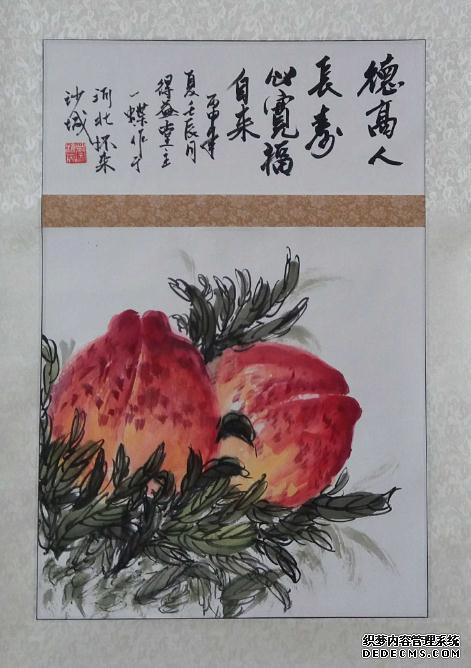 德高人
長寿
心寬福
自来
丙申年
夏壬辰月
得益堂主
一蝶作于
河北怀来
沙城
织梦内容管理系统
DEDECMS.COM